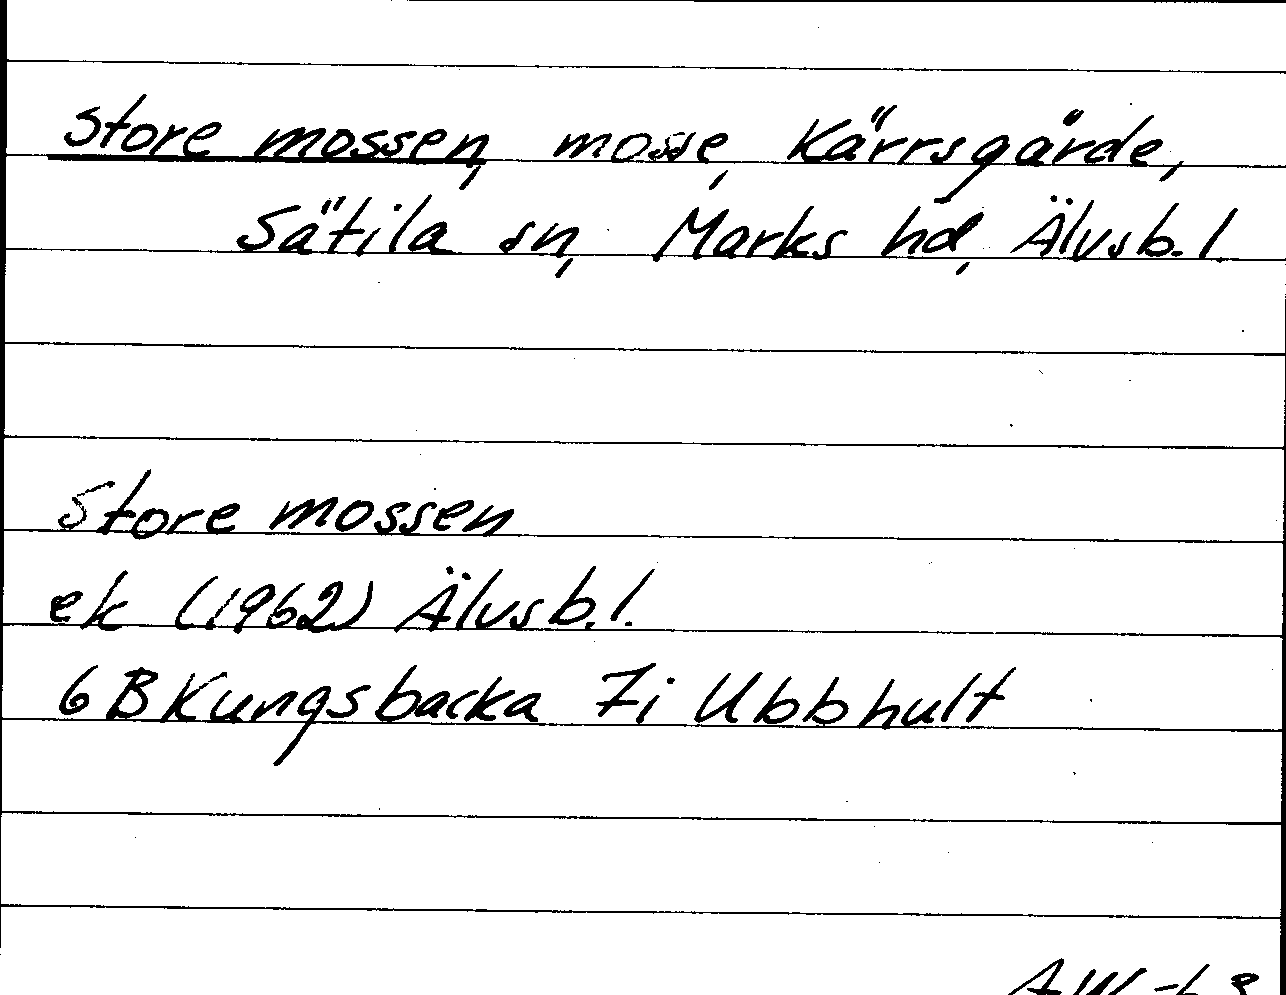 Store mossen, mosse, Kärrsgärde,
Sätila sn, Marks hd, Älvsb. l.
Store mossen
ek (1962) Älvsb. l.
6 B Kungsbacka 7i Ubbhult